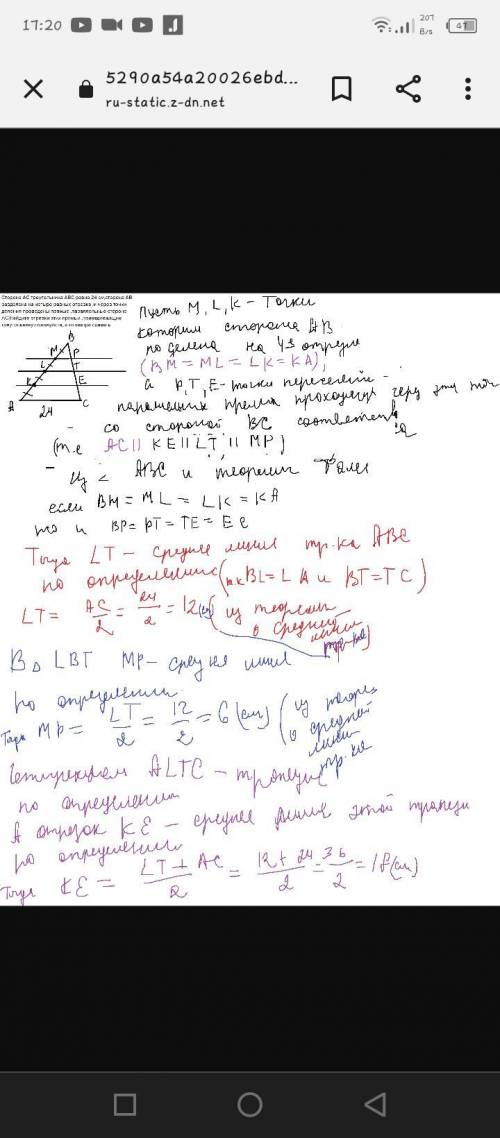 17:20
207
B/s
41
5290a54a20026ebd...
ru-static.z-dn.net
Сторона АС треугольника АВС равна 24 см, сторона АВ
разделена на четыре равных отрезка, и через точки
деления проведены прямые, параллельные стороне
АС
B
M P
L T
K E
A C
24
Пусть M, L, K - точки
которым сторона AB
поделена на 4 отрезке
(BM = ML = LK = KA),
а P, T, E - точки пересечений -
прямых проходящ через эти
со стороной BC соответств
(т.е AC || KE || LT || MP)
Из < ABC и теоремы Фалес
если BM = ML = LK = KA
то и BP = PT = TE = EC
Тогда LT - средняя линия тр-ка ABC
по определению (т.к BL = LA и BT = TC)
LT = AC/2 = 24/2 = 12 (см) (из теоремы
о средней
линии
тр-ка)
В Δ LBT MP - средняя линия
по определении
Тогда MP = LT/2 = 12/2 = 6 (см) (из теорем
о средней
линии
тр-ка
Четырехугом ALTC - трапеция
по определении
А отрезок KE - средняя линия этой трапеци
по определении
Тогда KE = LT + AC/2 = 12 + 24/2 = 36/2 = 18 (см)